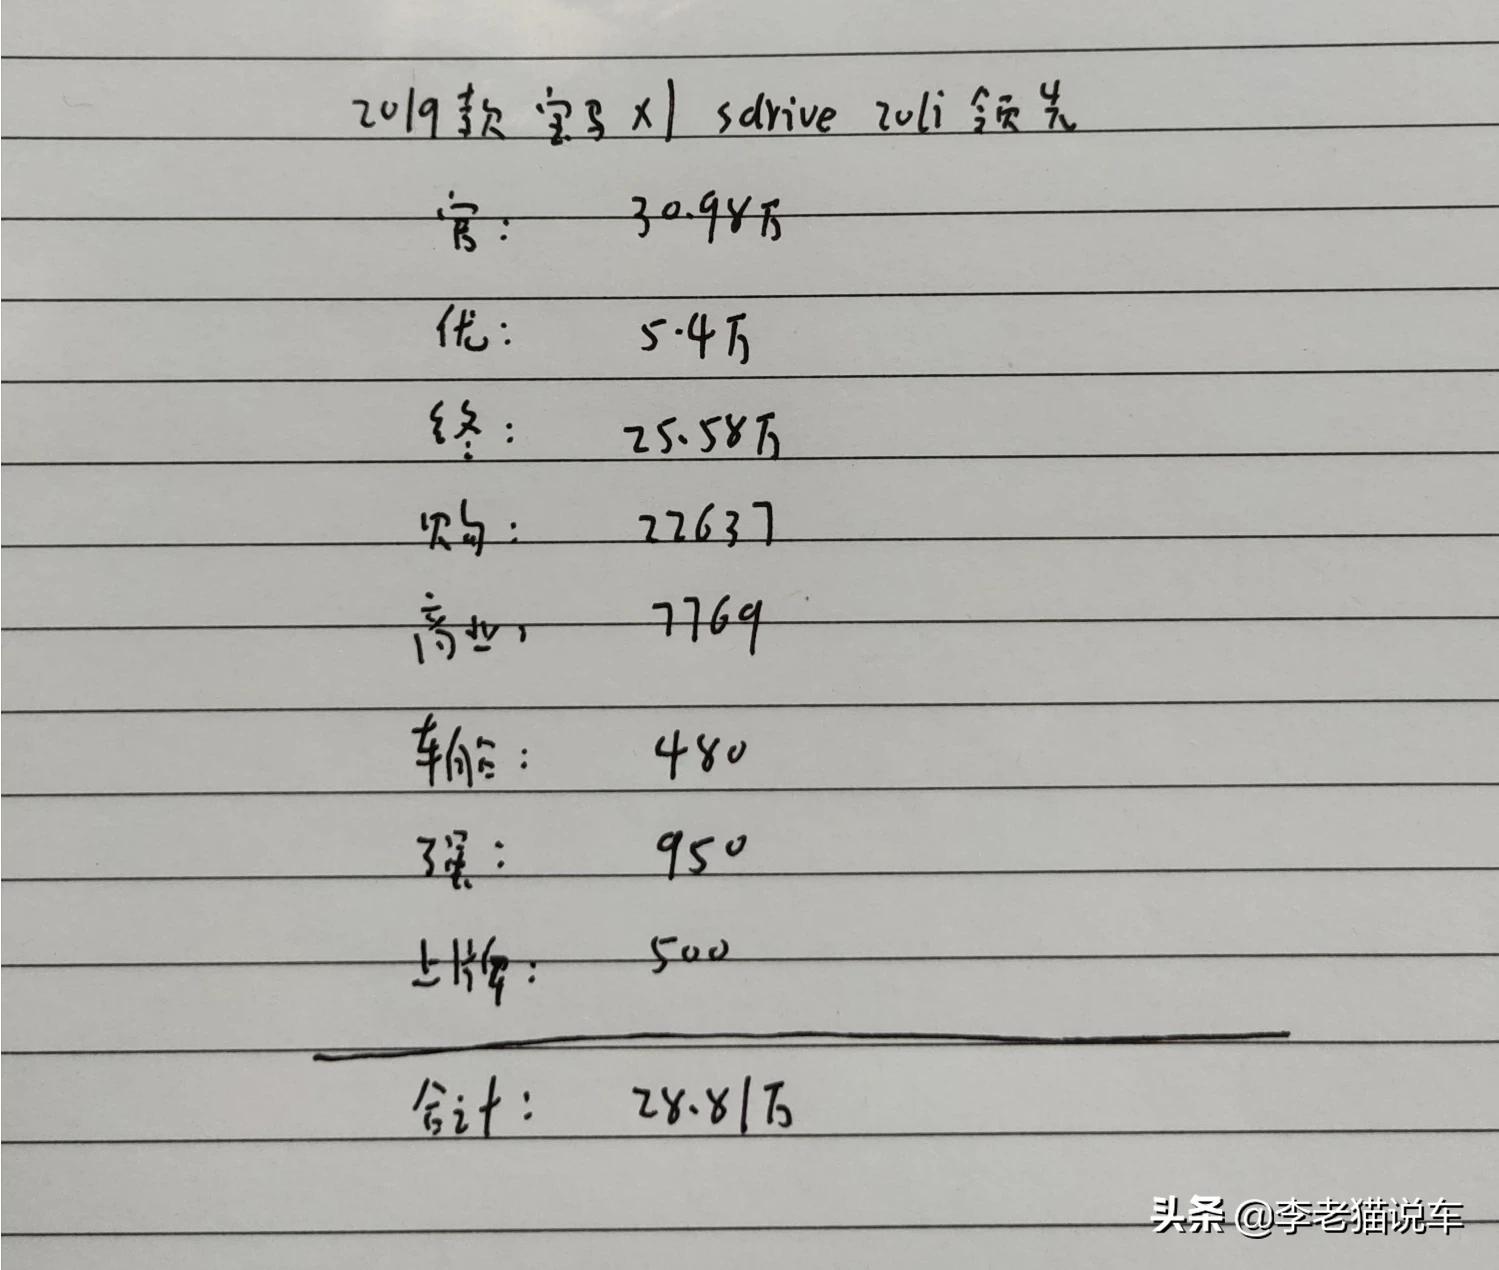 2019款宝马x1 sdrive 20li 领先
官: 30.98万
优: 5.4万
终: 25.58万
购: 22637
商业: 7769
车船: 480
3梁: 950
上牌: 500
合计: 28.81万
头条 @李老猫说车